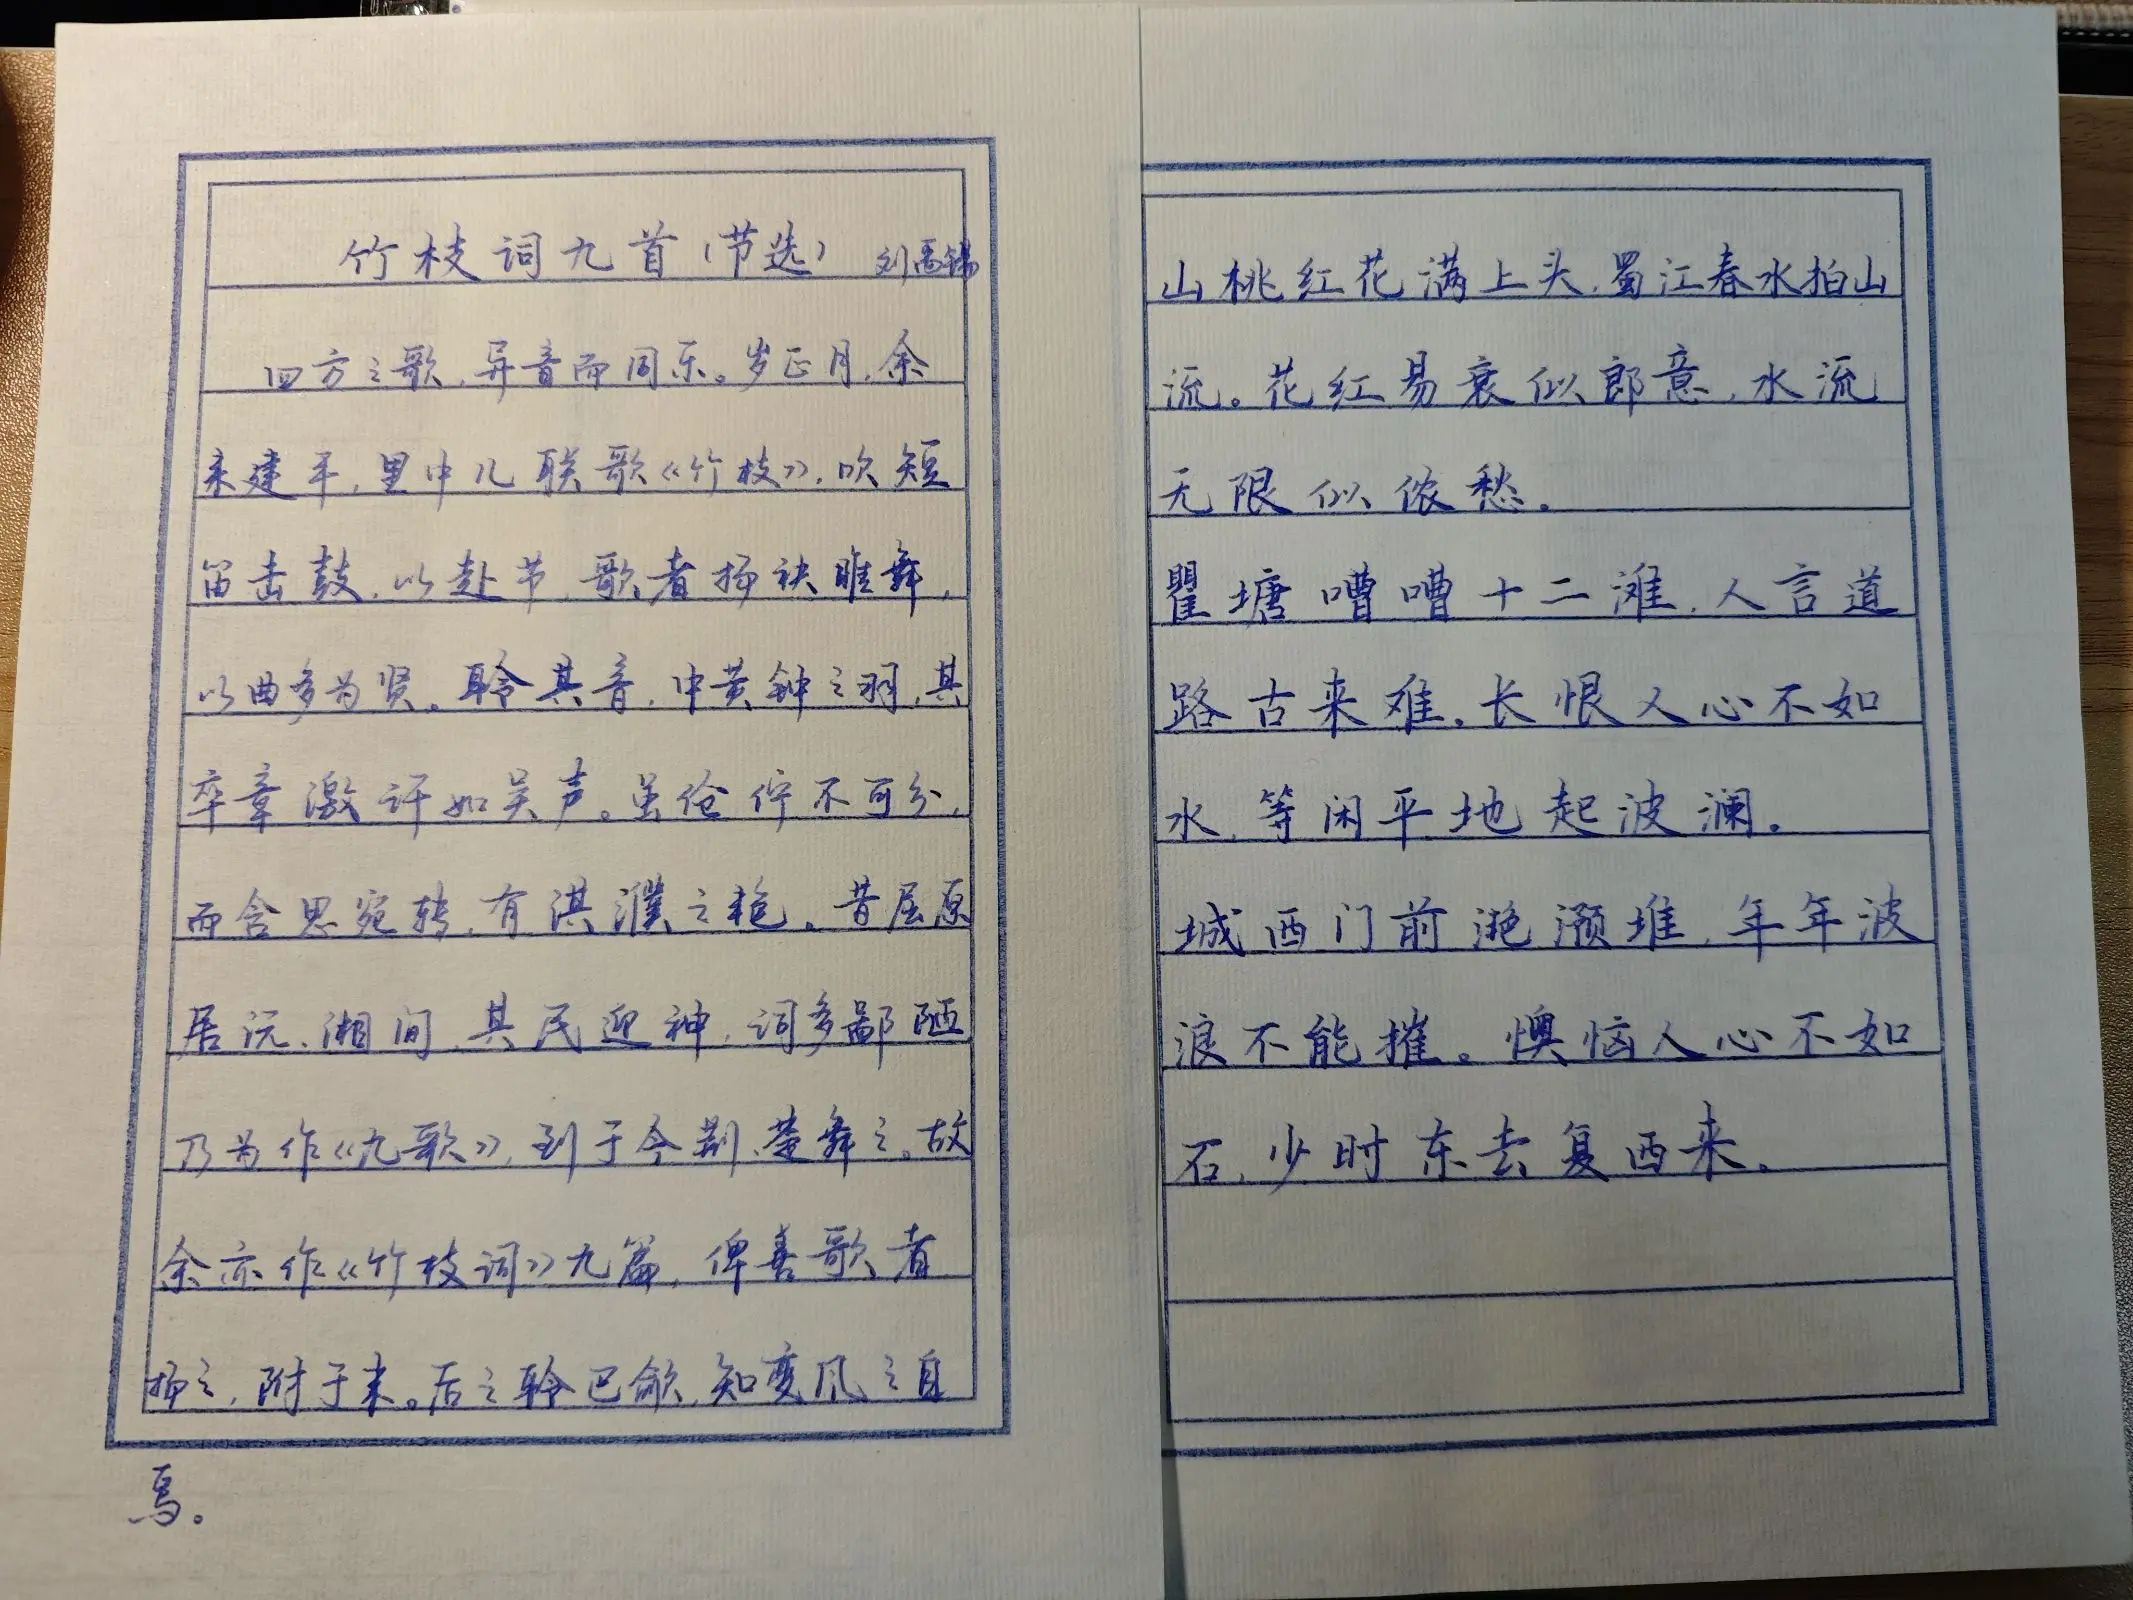 竹枝词九首(节选) 刘禹锡
四方之歌,异音而同乐。岁正月,余
来建平,里中儿联歌《竹枝》,吹短
笛击鼓,以赴节,歌者扬袂睢舞,
以曲多为贤。聆其音,中黄钟之羽,其
卒章激讦如吴声。虽伧佇不可分,
而含思宛转,有淇濮之艳。昔屈原
居沅、湘间,其民迎神,词多鄙陋
乃为作《九歌》,到于今荆、楚舞之。故
余亦作《竹枝词》九篇,俾善歌者
扬之,附于末。后之聆巴歈,知变风之自
焉。
山桃红花满上头,蜀江春水拍山
流。花红易衰似郎意,水流
无限似侬愁。
瞿塘嘈嘈十二滩,人言道
路古来难。长恨人心不如
水,等闲平地起波澜。
城西门前滟滪堆,年年波
浪不能摧。懊恼人心不如
石,少时东去复西来。